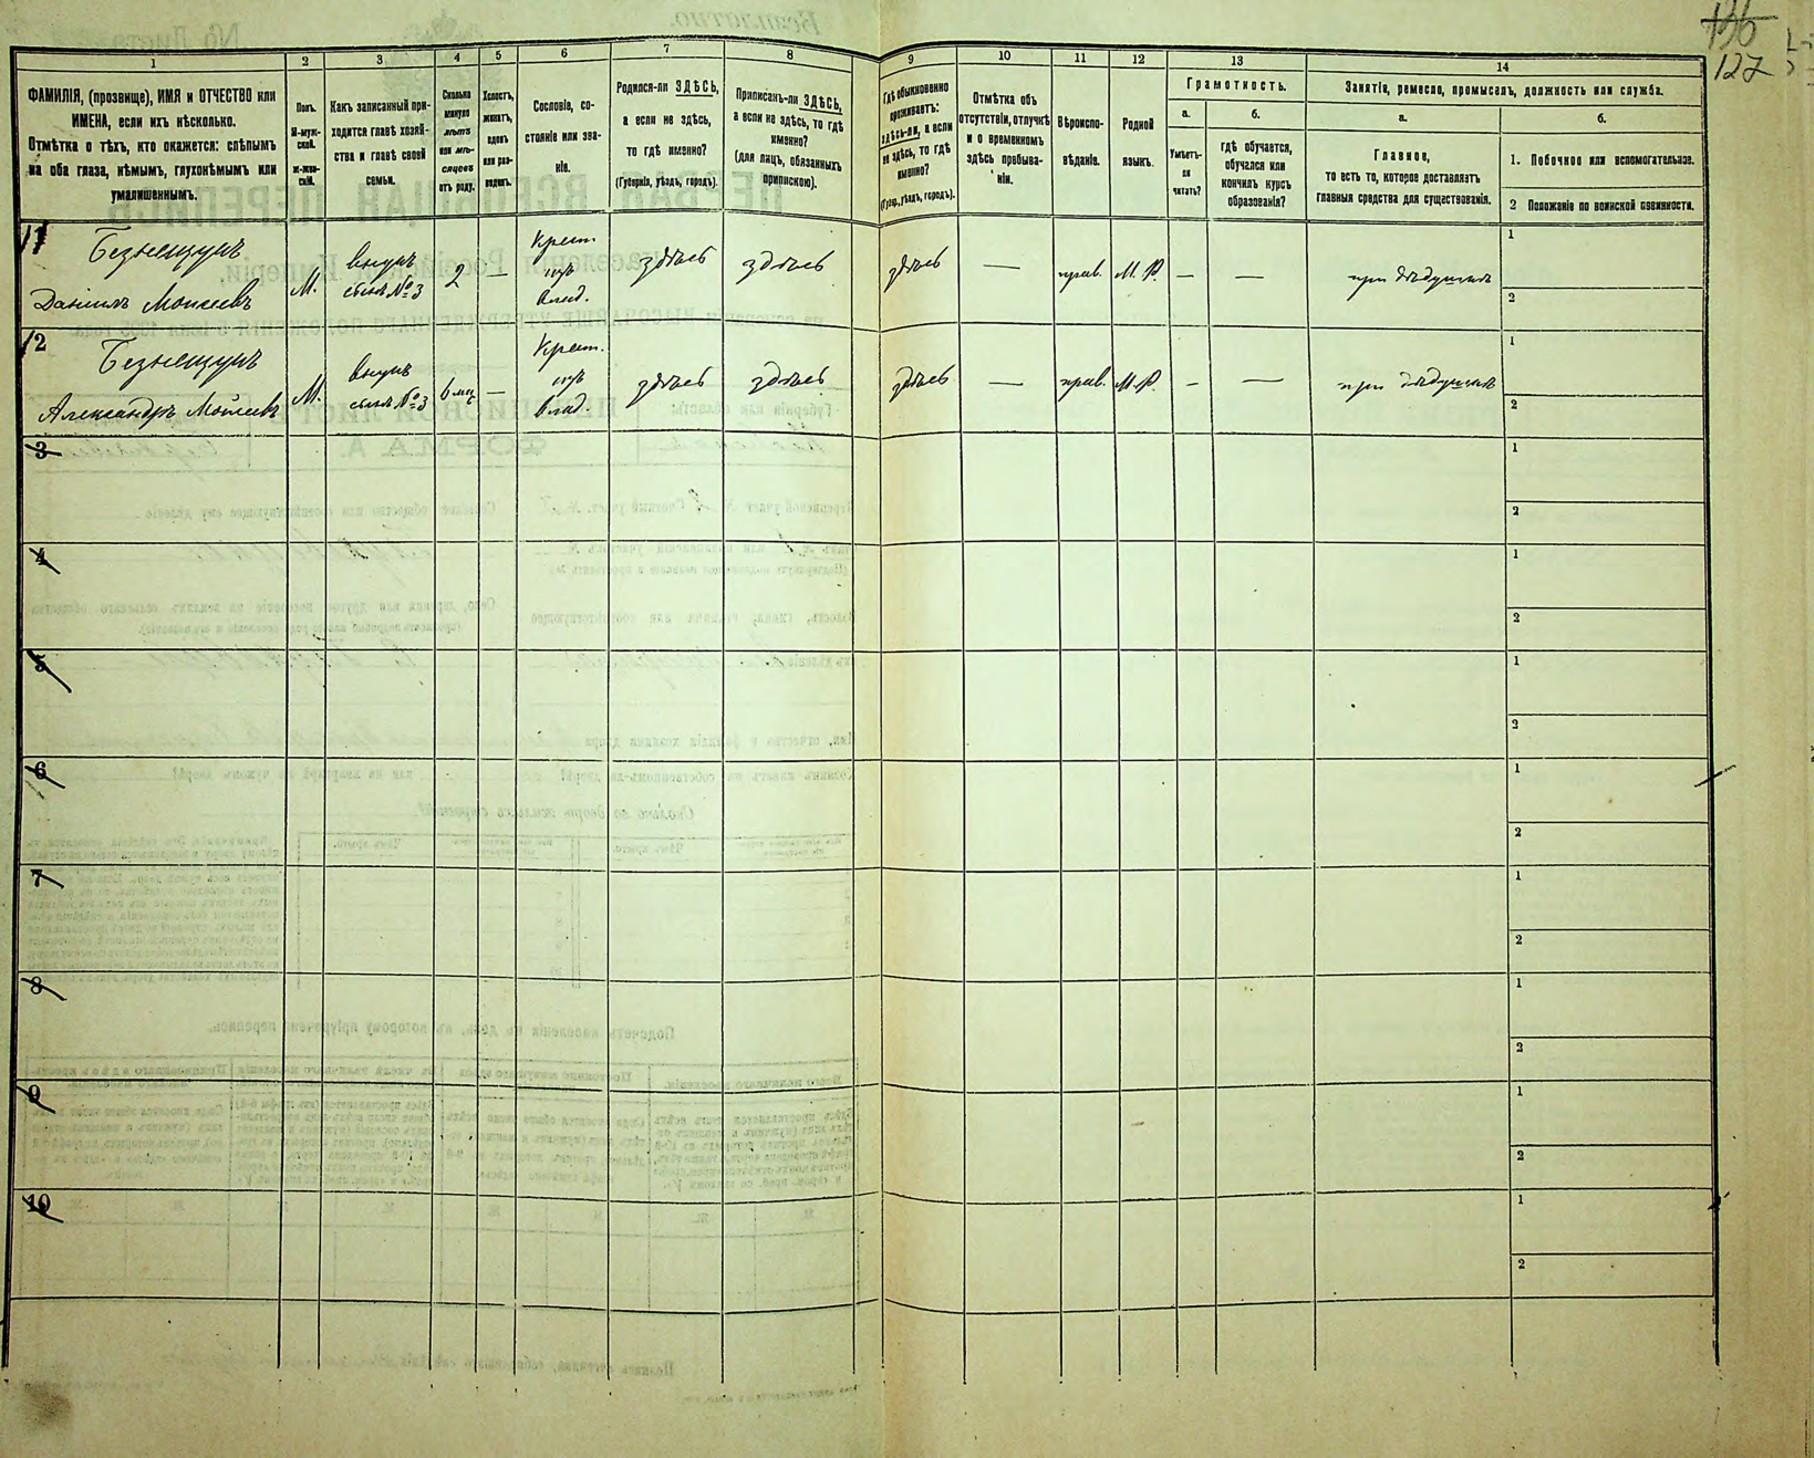 136
127
1
2
3
4
5
6
7
8
9
10
11
12
13
14
ФАМИЛІЯ, (прозвище), ИМЯ и ОТЧЕСТВО или
ИМЕНА, если ихъ нѣсколько.
Отмѣтка о тѣхъ, кто окажется: слѣпымъ
на оба глаза, нѣмымъ, глухонѣмымъ или
умалишеннымъ.
Полъ.
М-муж-
ской.
ж-жен-
скій.
Какъ записанный при-
ходится главѣ хозяй-
ства и главѣ своей
семьи.
Сколько
минуло
лѣтъ
или мѣ-
сяцевъ
отъ роду.
Холостъ,
женатъ,
вдовъ
или раз-
веденъ.
Сословіе, со-
стояніе или зва-
ніе.
Родился-ли ЗДѢСЬ,
а если не здѣсь,
то гдѣ именно?
(Губернія, уѣздъ, городъ).
Приписанъ-ли ЗДѢСЬ,
а если не здѣсь, то гдѣ
именно?
(для лицъ, обязанныхъ
припискою).
Гдѣ обыкновенно
проживаетъ:
здѣсь-ли, а если
не здѣсь, то гдѣ
именно?
(Губер., уѣздъ, городъ).
Отмѣтка объ
отсутствіи, отлучкѣ
и о временномъ
здѣсь пребыва-
ніи.
Вѣроиспо-
вѣданіе.
Родной
языкъ.
Грамотность.
а.
Умѣетъ-
ли
читать?
б.
гдѣ обучается,
обучался или
кончилъ курсъ
образованія?
Занятіе, ремесло, промыселъ, должность или служба.
а.
Главное,
то есть то, которое доставляетъ
главныя средства для существованія.
б.
1. Побочное или вспомогательное.
2 Положеніе по воинской повинности.
11
Безнещукъ
Даніилъ Моисеевъ
М.
внукъ
сынъ №3
2
—
Крест.
изъ
влад.
здѣсь
здѣсь
здѣсь
—
прав.
М. Р.
—
—
при дѣдушкѣ
1
2
12
Безнещукъ
Александръ Моисеевъ
М.
внукъ
сынъ №3
6 мц
—
Крест.
изъ
влад.
здѣсь
здѣсь
здѣсь
—
прав.
М. Р.
—
—
при дѣдушкѣ
1
2
3
1
2
4
1
2
5
1
2
6
1
2
7
1
2
8
1
2
9
1
2
10
1
2